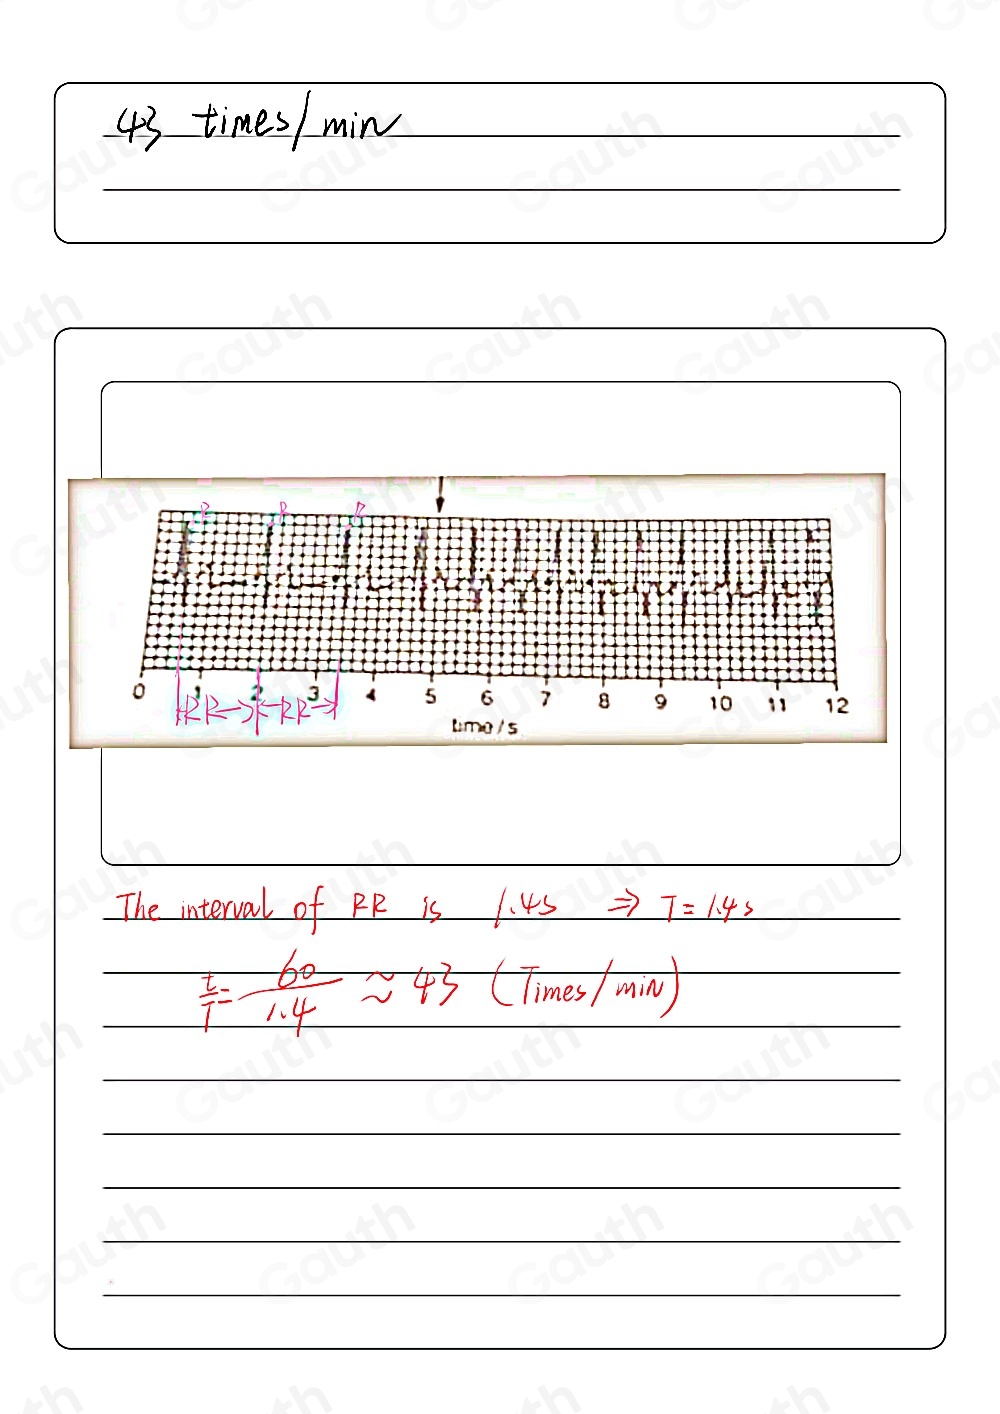 43 times/min
R R R
0 1 2 3 4 5 6 7 8 9 10 11 12
RR RR
time/s
The interval of RR is 1.4s ⇒ T = 1.4s
t/T = 60/1.4 ≈ 43 (Times/min)
Gauth